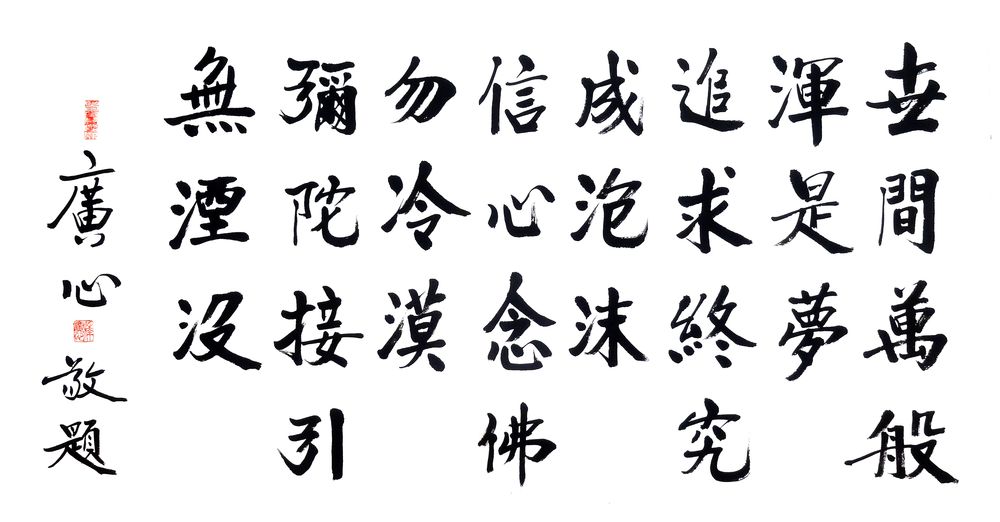 世間萬般
渾是夢
追求終究
成泡沫
信心念佛
勿冷漠
彌陀接引
無湮沒
廣心敬題